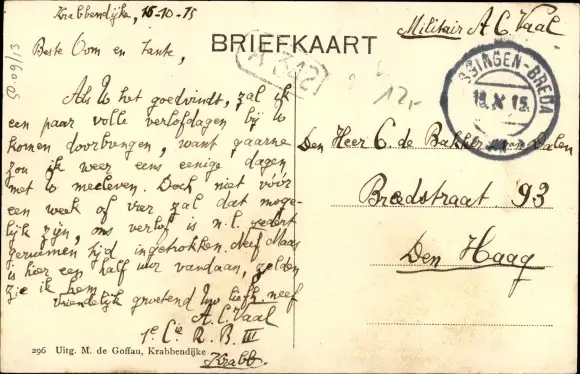 Krabbendijke, 15-10-15
Militair A. C. Vaal
Beste Oom en Tante,
BRIEFKAART
Als U het goedvindt, zal ik
een paar volle verlofdagen bij U
komen doorbrengen, want gaarne
zou ik weer eens eenige dagen
met U meeleven. Doch niet vóór
een week of vier zal dat moge-
lijk zijn, ons verlof is n.l. sedert
geruimen tijd ingetrokken. Neef Maas
is hier een half uur vandaan, zelden
zie ik hem.
Vriendelijk groetend Uw liefh. neef
A. C. Vaal
1e Cie R. B. III
Krabb.
SSINGEN-BREDA
18 X 15
Den Heer C. de Bakker
Breedstraat 93
Den Haag
296 Uitg. M. de Goffau, Krabbendijke